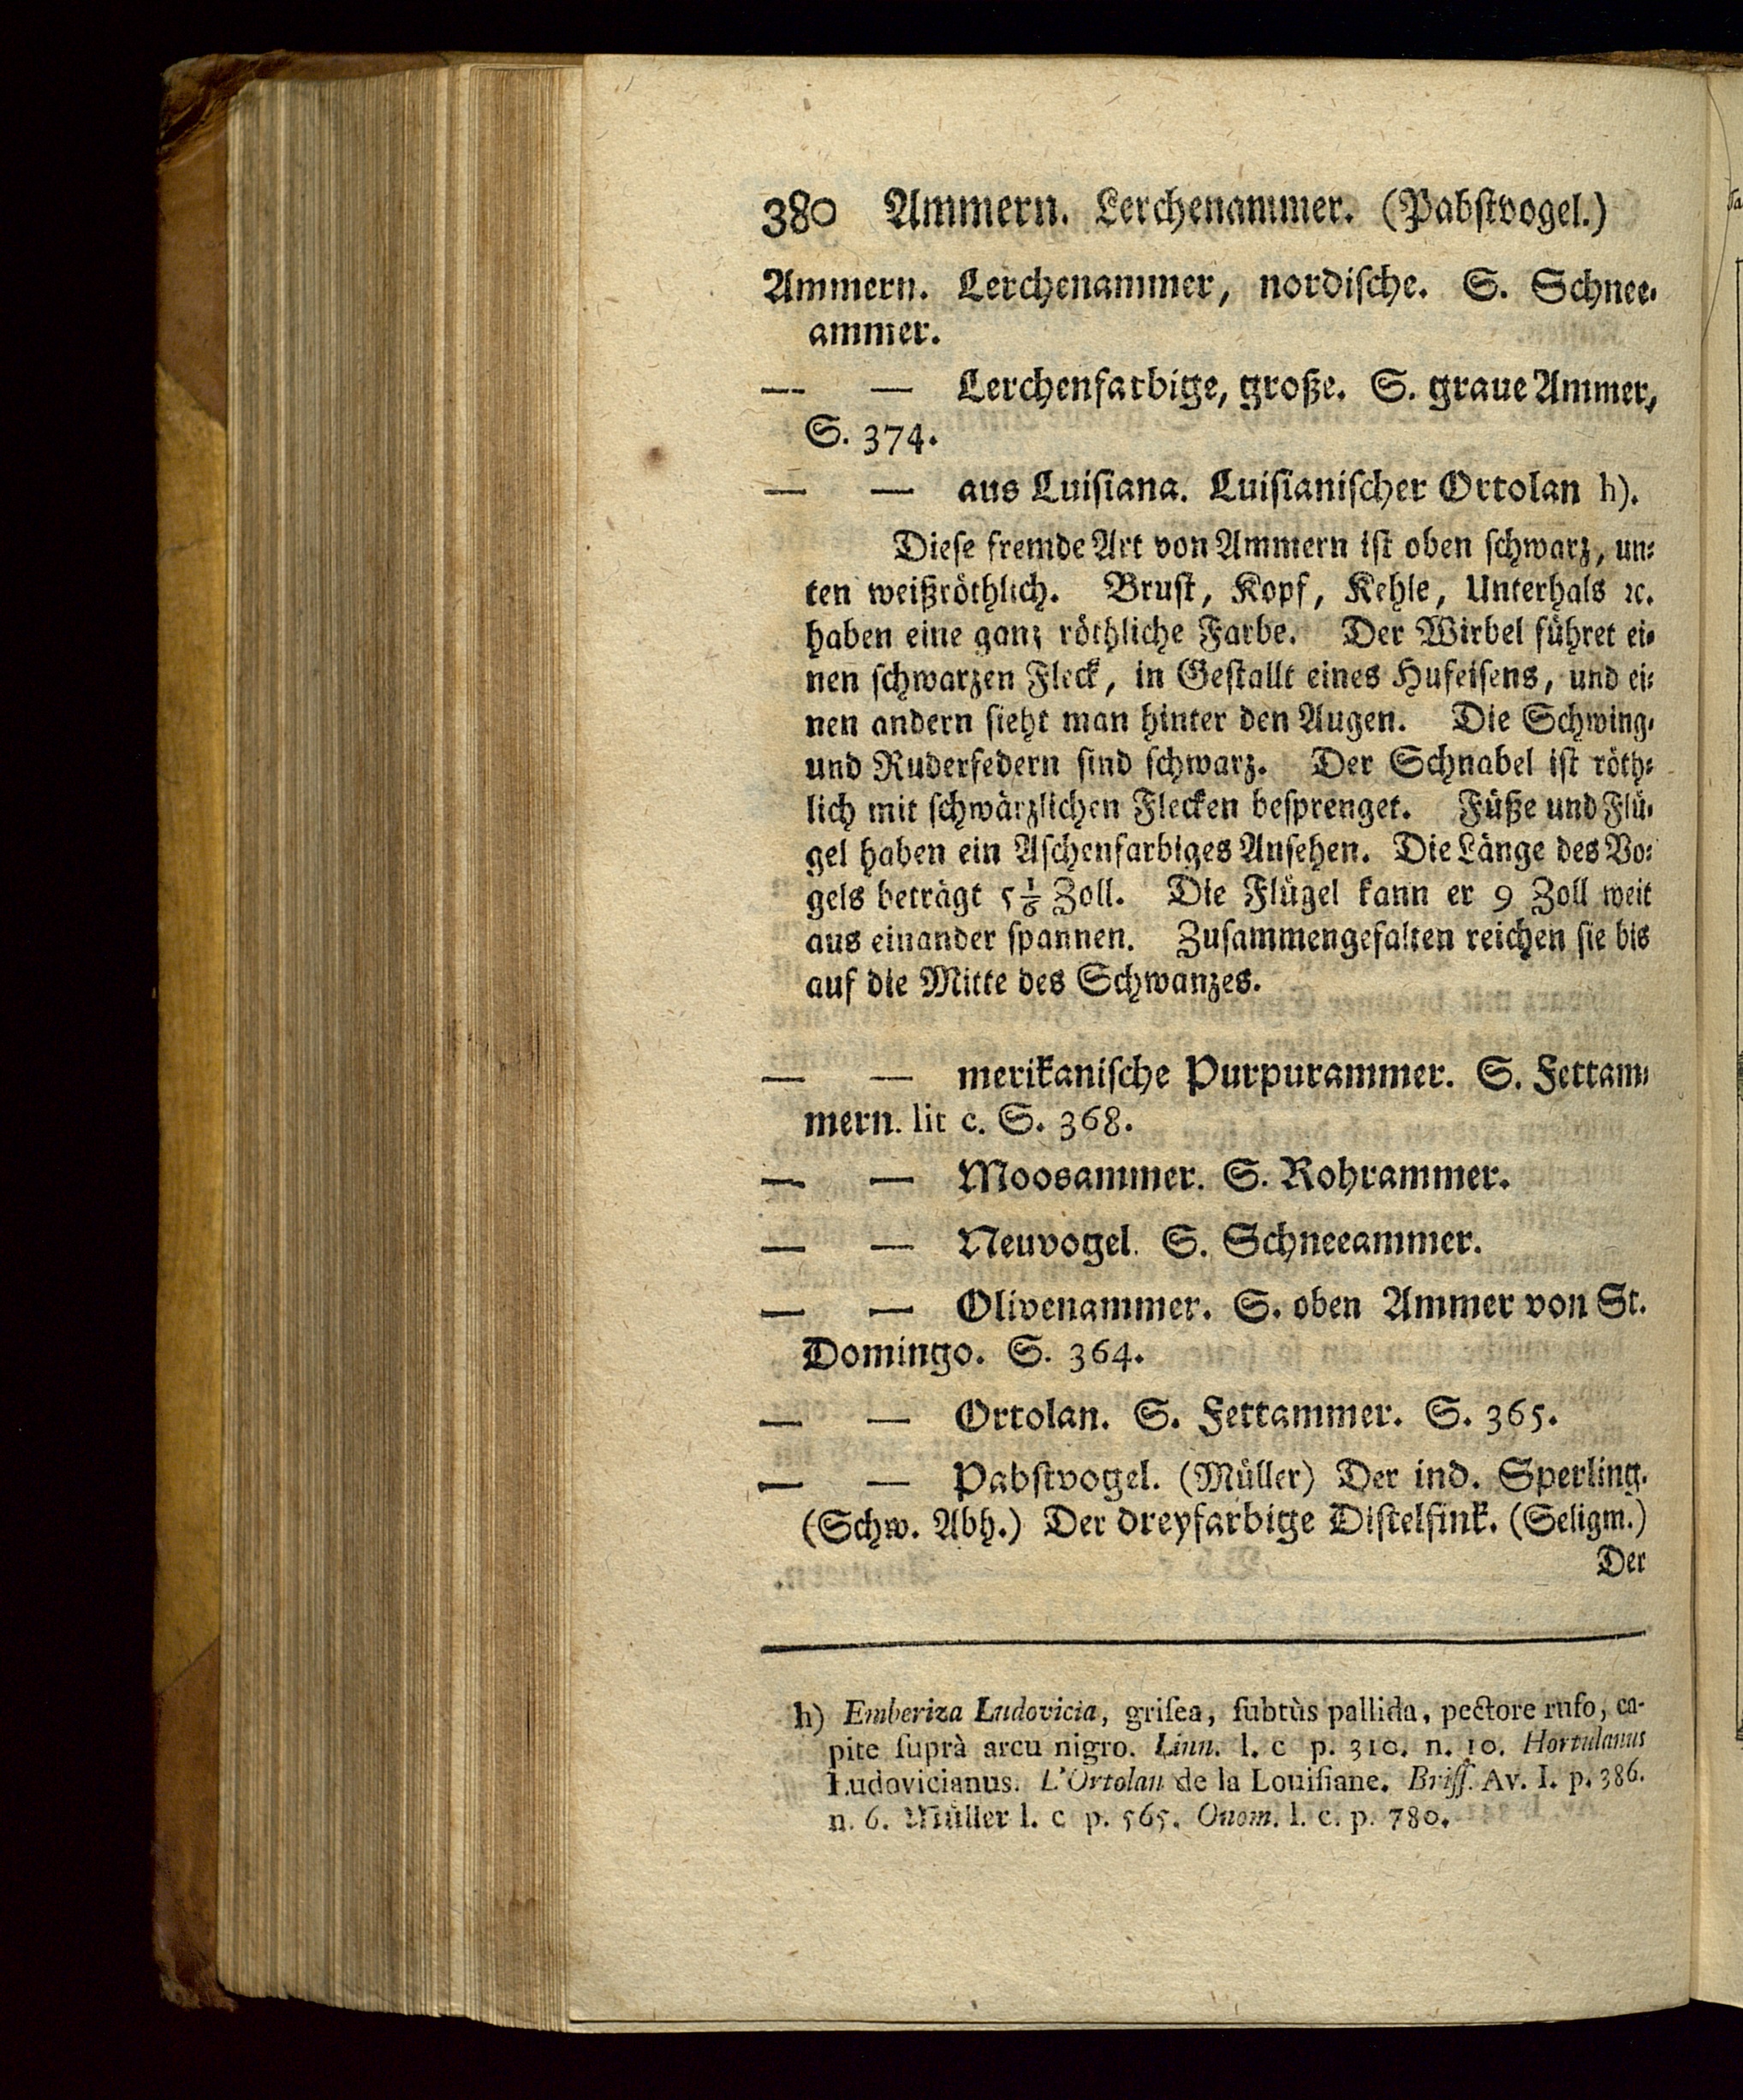 380 Ammern. Lerchenammer. (Pabſtvogel.)
Ammern. Lerchenammer, nordiſche. S. Schnee-
ammer.
— — Lerchenfarbige, große. S. graue Ammer,
S. 374.
— — aus Luiſiana. Luiſianiſcher Ortolan h).
Dieſe fremde Art von Ammern iſt oben ſchwarz, un-
ten weißröthlich. Bruſt, Kopf, Kehle, Unterhals ꝛc.
haben eine ganz röthliche Farbe. Der Wirbel führet ei-
nen ſchwarzen Fleck, in Geſtallt eines Hufeiſens, und ei-
nen andern ſieht man hinter den Augen. Die Schwing-
und Ruderfedern ſind ſchwarz. Der Schnabel iſt röth-
lich mit ſchwärzlichen Flecken beſprenget. Füße und Flü-
gel haben ein Aſchenfarbiges Anſehen. Die Länge des Vo-
gels beträgt 5 1/6 Zoll. Die Flügel kann er 9 Zoll weit
aus einander ſpannen. Zuſammengefalten reichen ſie bis
auf die Mitte des Schwanzes.
— — merikaniſche Purpurammer. S. Fettam-
mern. lit c. S. 368.
— — Moosammer. S. Rohrammer.
— — Neuvogel. S. Schneeammer.
— — Olivenammer. S. oben Ammer von St.
Domingo. S. 364.
— — Ortolan. S. Fettammer. S. 365.
— — Pabſtvogel. (Müller) Der ind. Sperling.
(Schw. Abh.) Der dreyfarbige Diſtelfink. (Seligm.)
Der
h) Emberiza Ludovicia, griſea, ſubtùs pallida, pectore rufo, ca-
pite ſuprà arcu nigro. Linn. l. c p. 310. n. 10. Hortulanus
Ludovicianus. L'Ortolan de la Louiſiane. Briſſ. Av. I. p. 386.
n. 6. Müller l. c p. 565. Onom. l. c. p. 780.